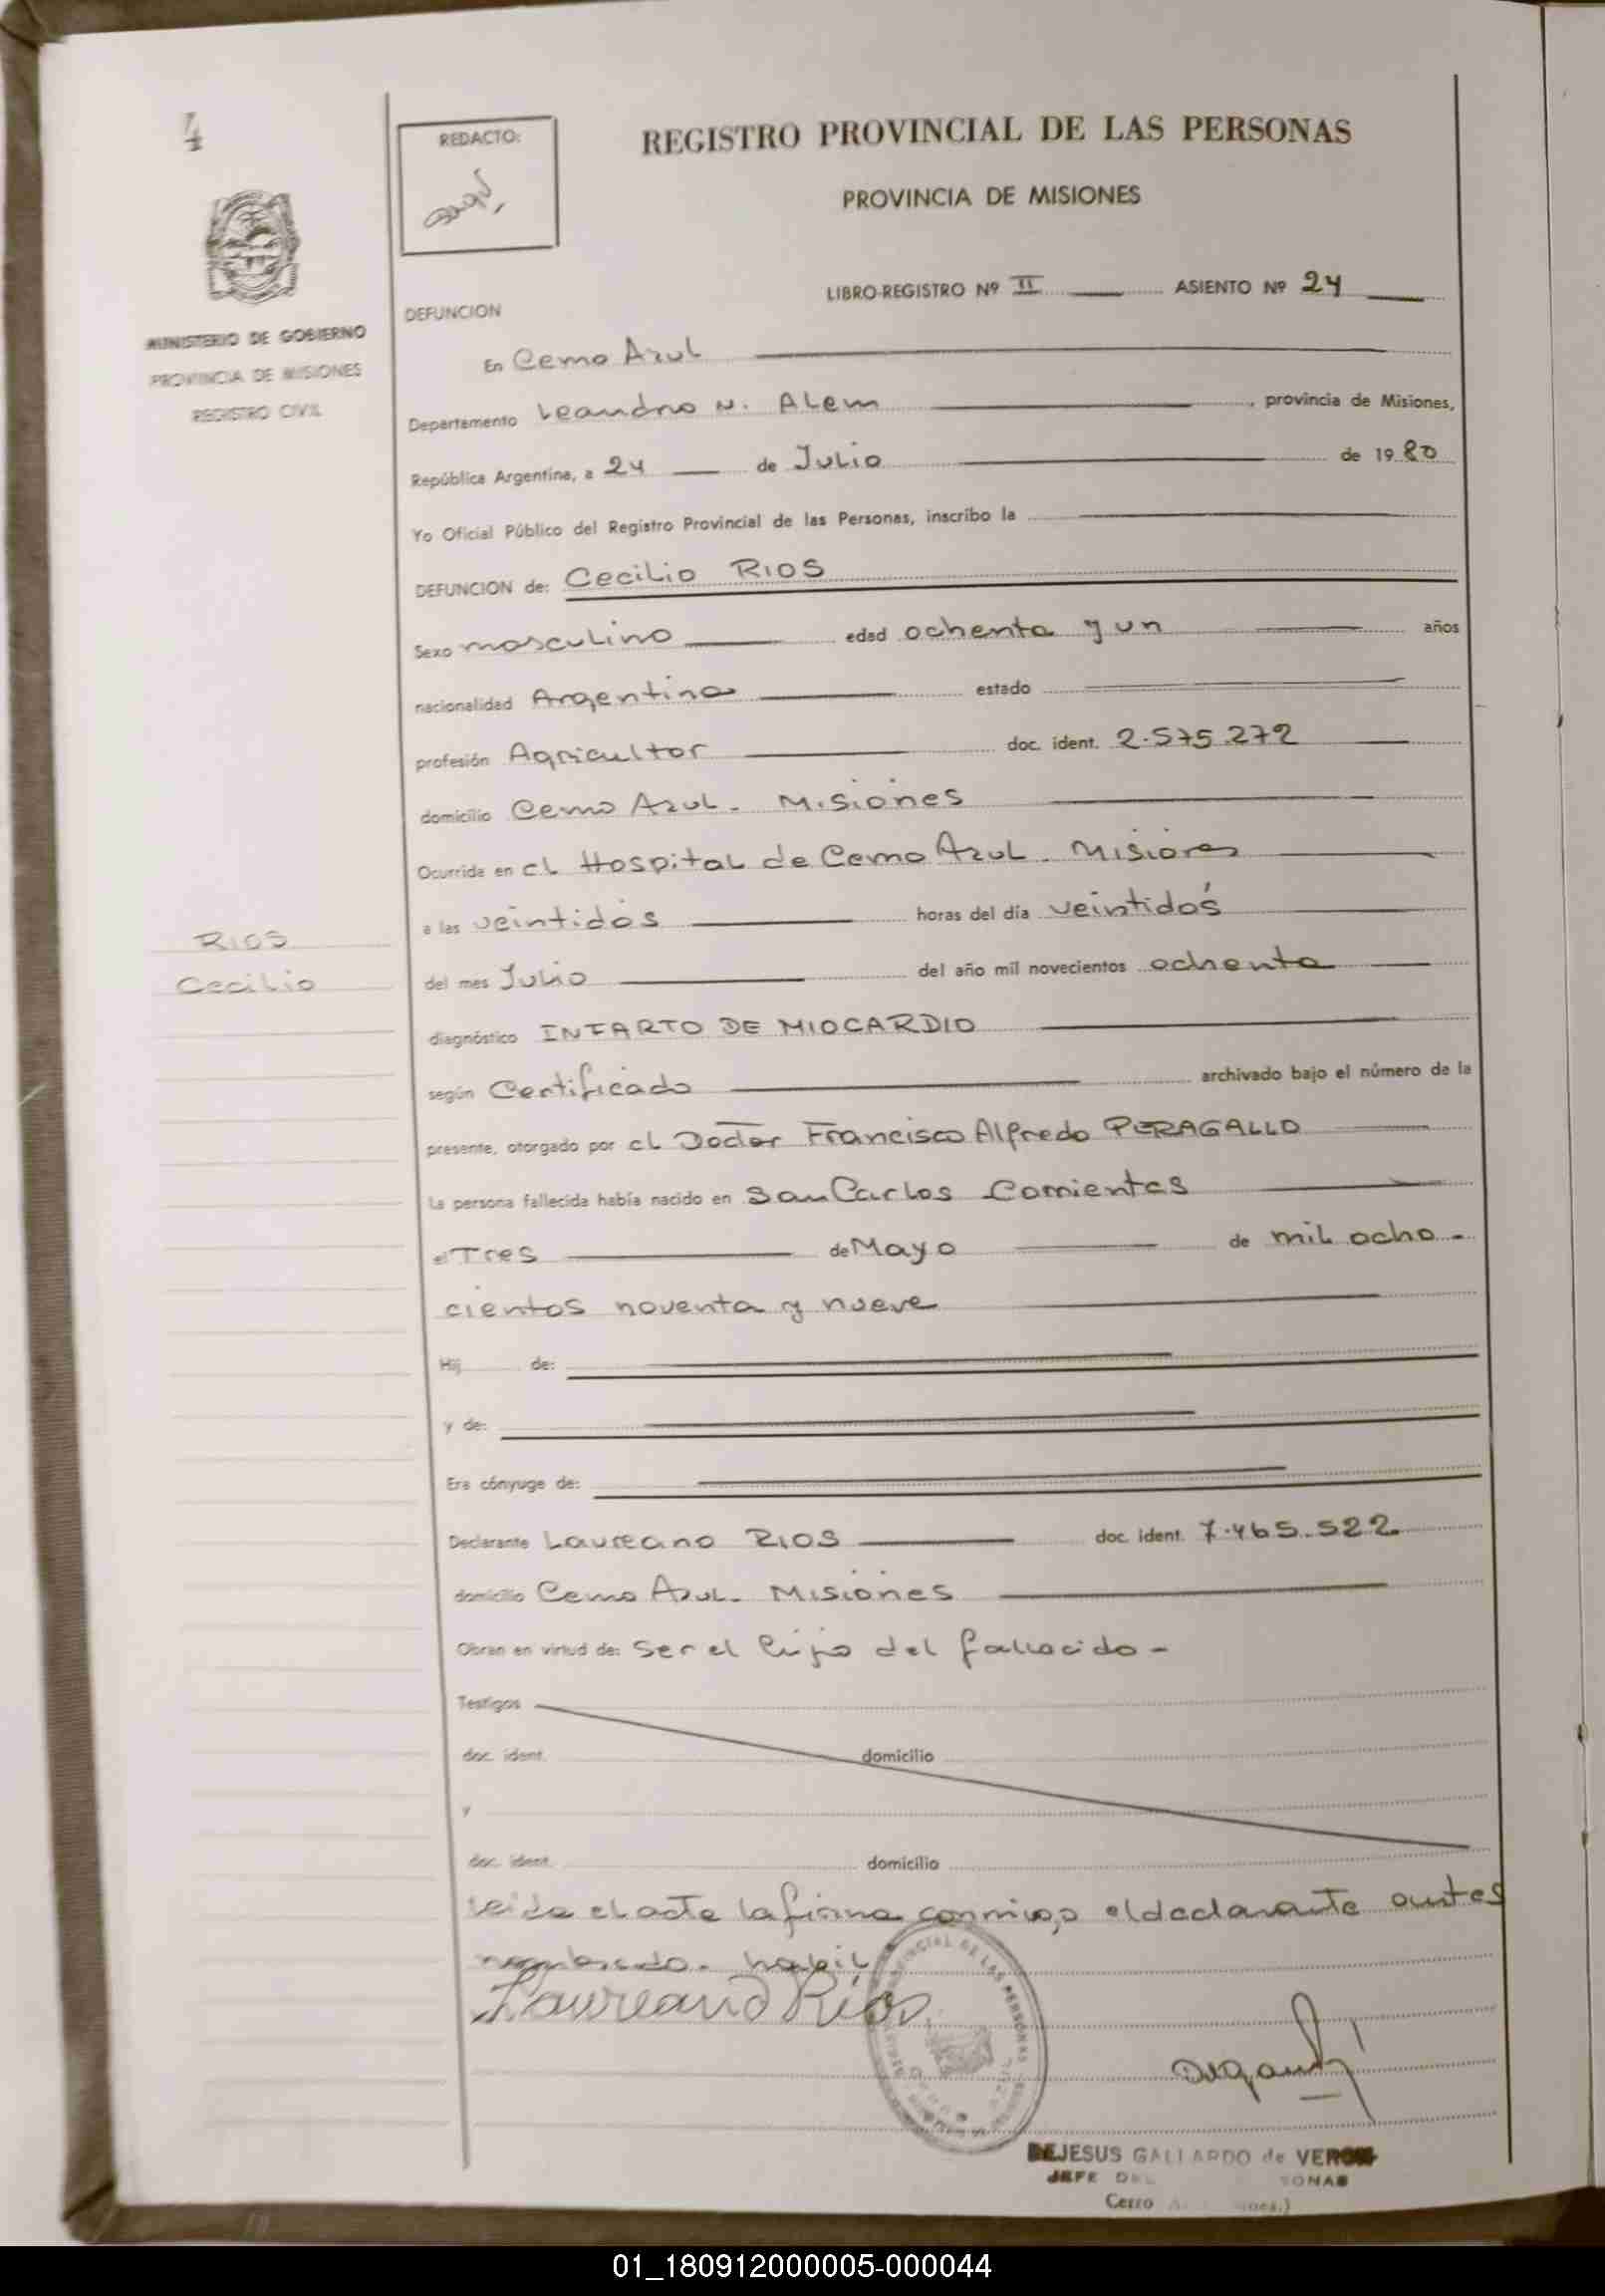 4
REDACTO:
REGISTRO PROVINCIAL DE LAS PERSONAS
PROVINCIA DE MISIONES
LIBRO-REGISTRO Nº II ASIENTO Nº 24
MINISTERIO DE GOBIERNO
PROVINCIA DE MISIONES
REGISTRO CIVIL
DEFUNCION
En Cerro Azul
Departamento Leandro N. Alem , provincia de Misiones,
República Argentina, a 24 de Julio de 1980
Yo Oficial Público del Registro Provincial de las Personas, inscribo la
DEFUNCION de: Cecilio RIOS
Sexo masculino edad ochenta y un años
nacionalidad Argentina estado
profesión Agricultor doc. ident. 2.575.272
domicilio Cerro Azul. Misiones
Ocurrida en el Hospital de Cerro Azul. Misiones
a las veintidós horas del día veintidós
RIOS
Cecilio
del mes Julio del año mil novecientos ochenta
diagnóstico INFARTO DE MIOCARDIO
según Certificado archivado bajo el número de la
presente, otorgado por el Doctor Francisco Alfredo PERAGALLO
La persona fallecida había nacido en San Carlos Corrientes
el Tres de Mayo de mil ocho-
cientos noventa y nueve
Hij de:
y de:
Era cónyuge de:
Declarante Laureano RIOS doc. ident. 7.465.522
domicilio Cerro Azul. Misiones
Obran en virtud de: Ser el hijo del fallecido-
Testigos
doc. ident. domicilio
y
doc. ident. domicilio
Leida el acta la firma conmigo el declarante antes
nombrado. habil
Laureano Ríos
DEJESUS GALLARDO de VERON
JEFE
Cerro
01_180912000005-000044